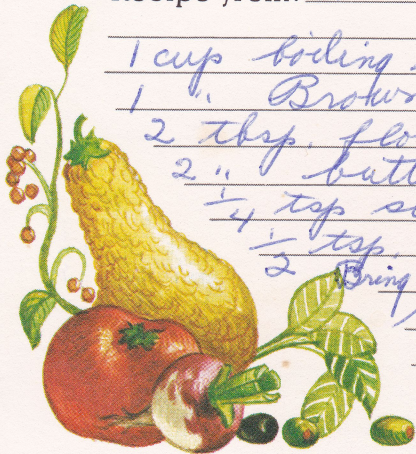 Recipe from:
1 cup boiling
1 " Brow
2 tbsp. flo
2 " butt
1/4 tsp s
1/2 tsp.
Bring